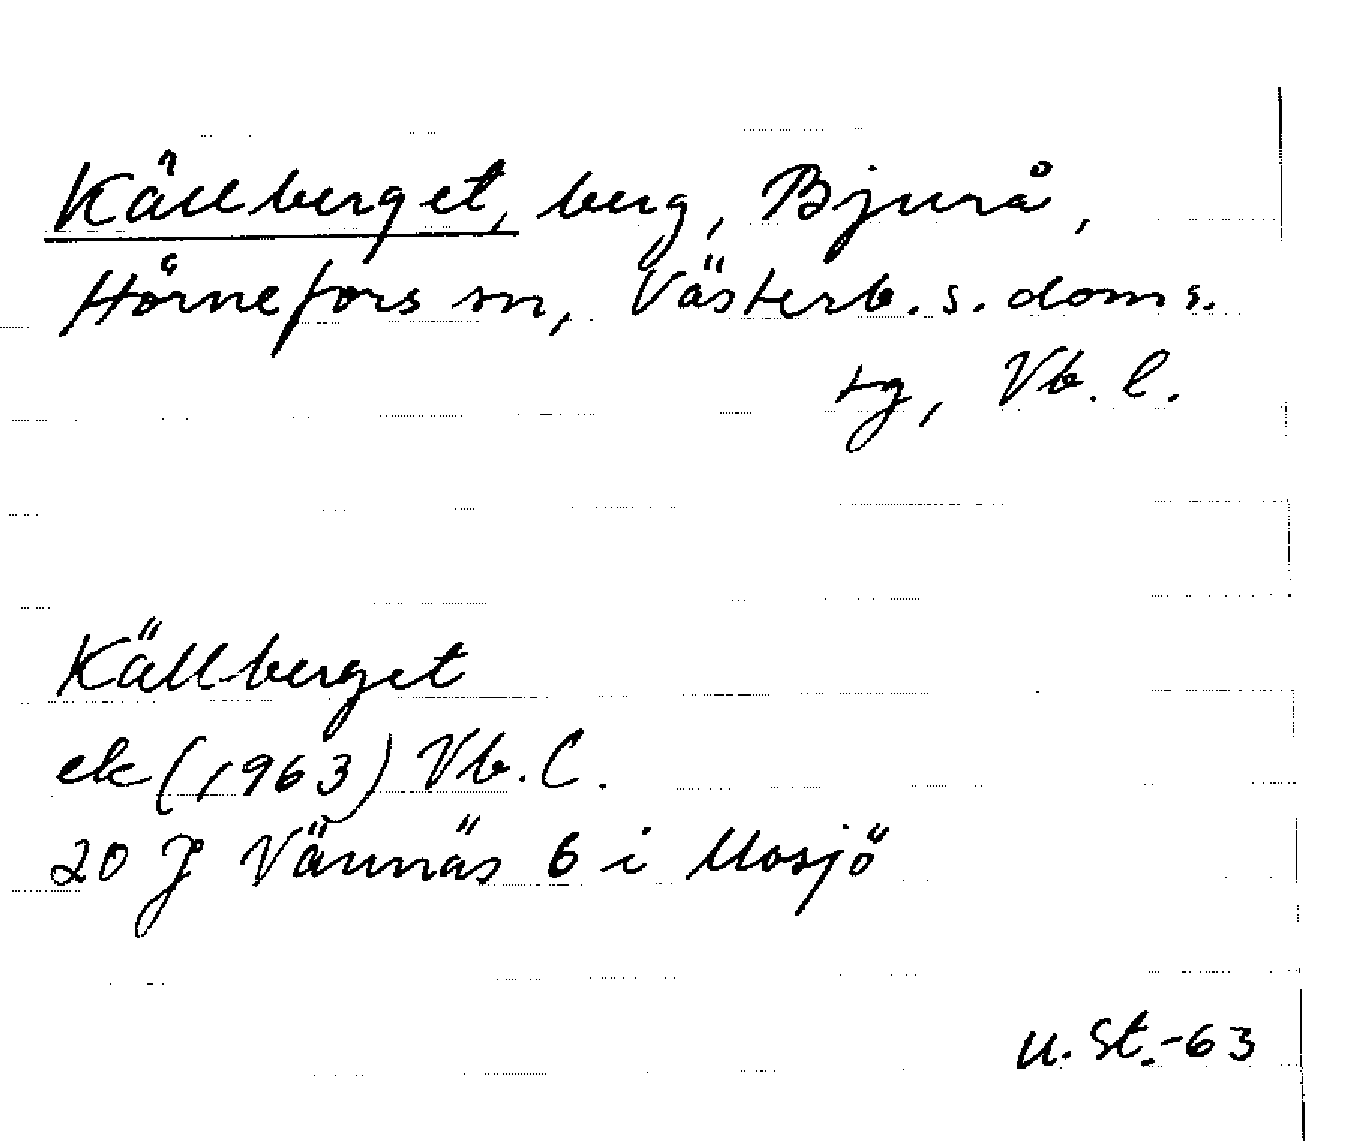 Källberget, berg, Bjurå,
Hörnefors sn, Västerb. s. doms.
tg, Vb. l.
Källberget
ek (1963) Vb. C.
20 J Vännäs 6 i Mosjö
U. St.-63